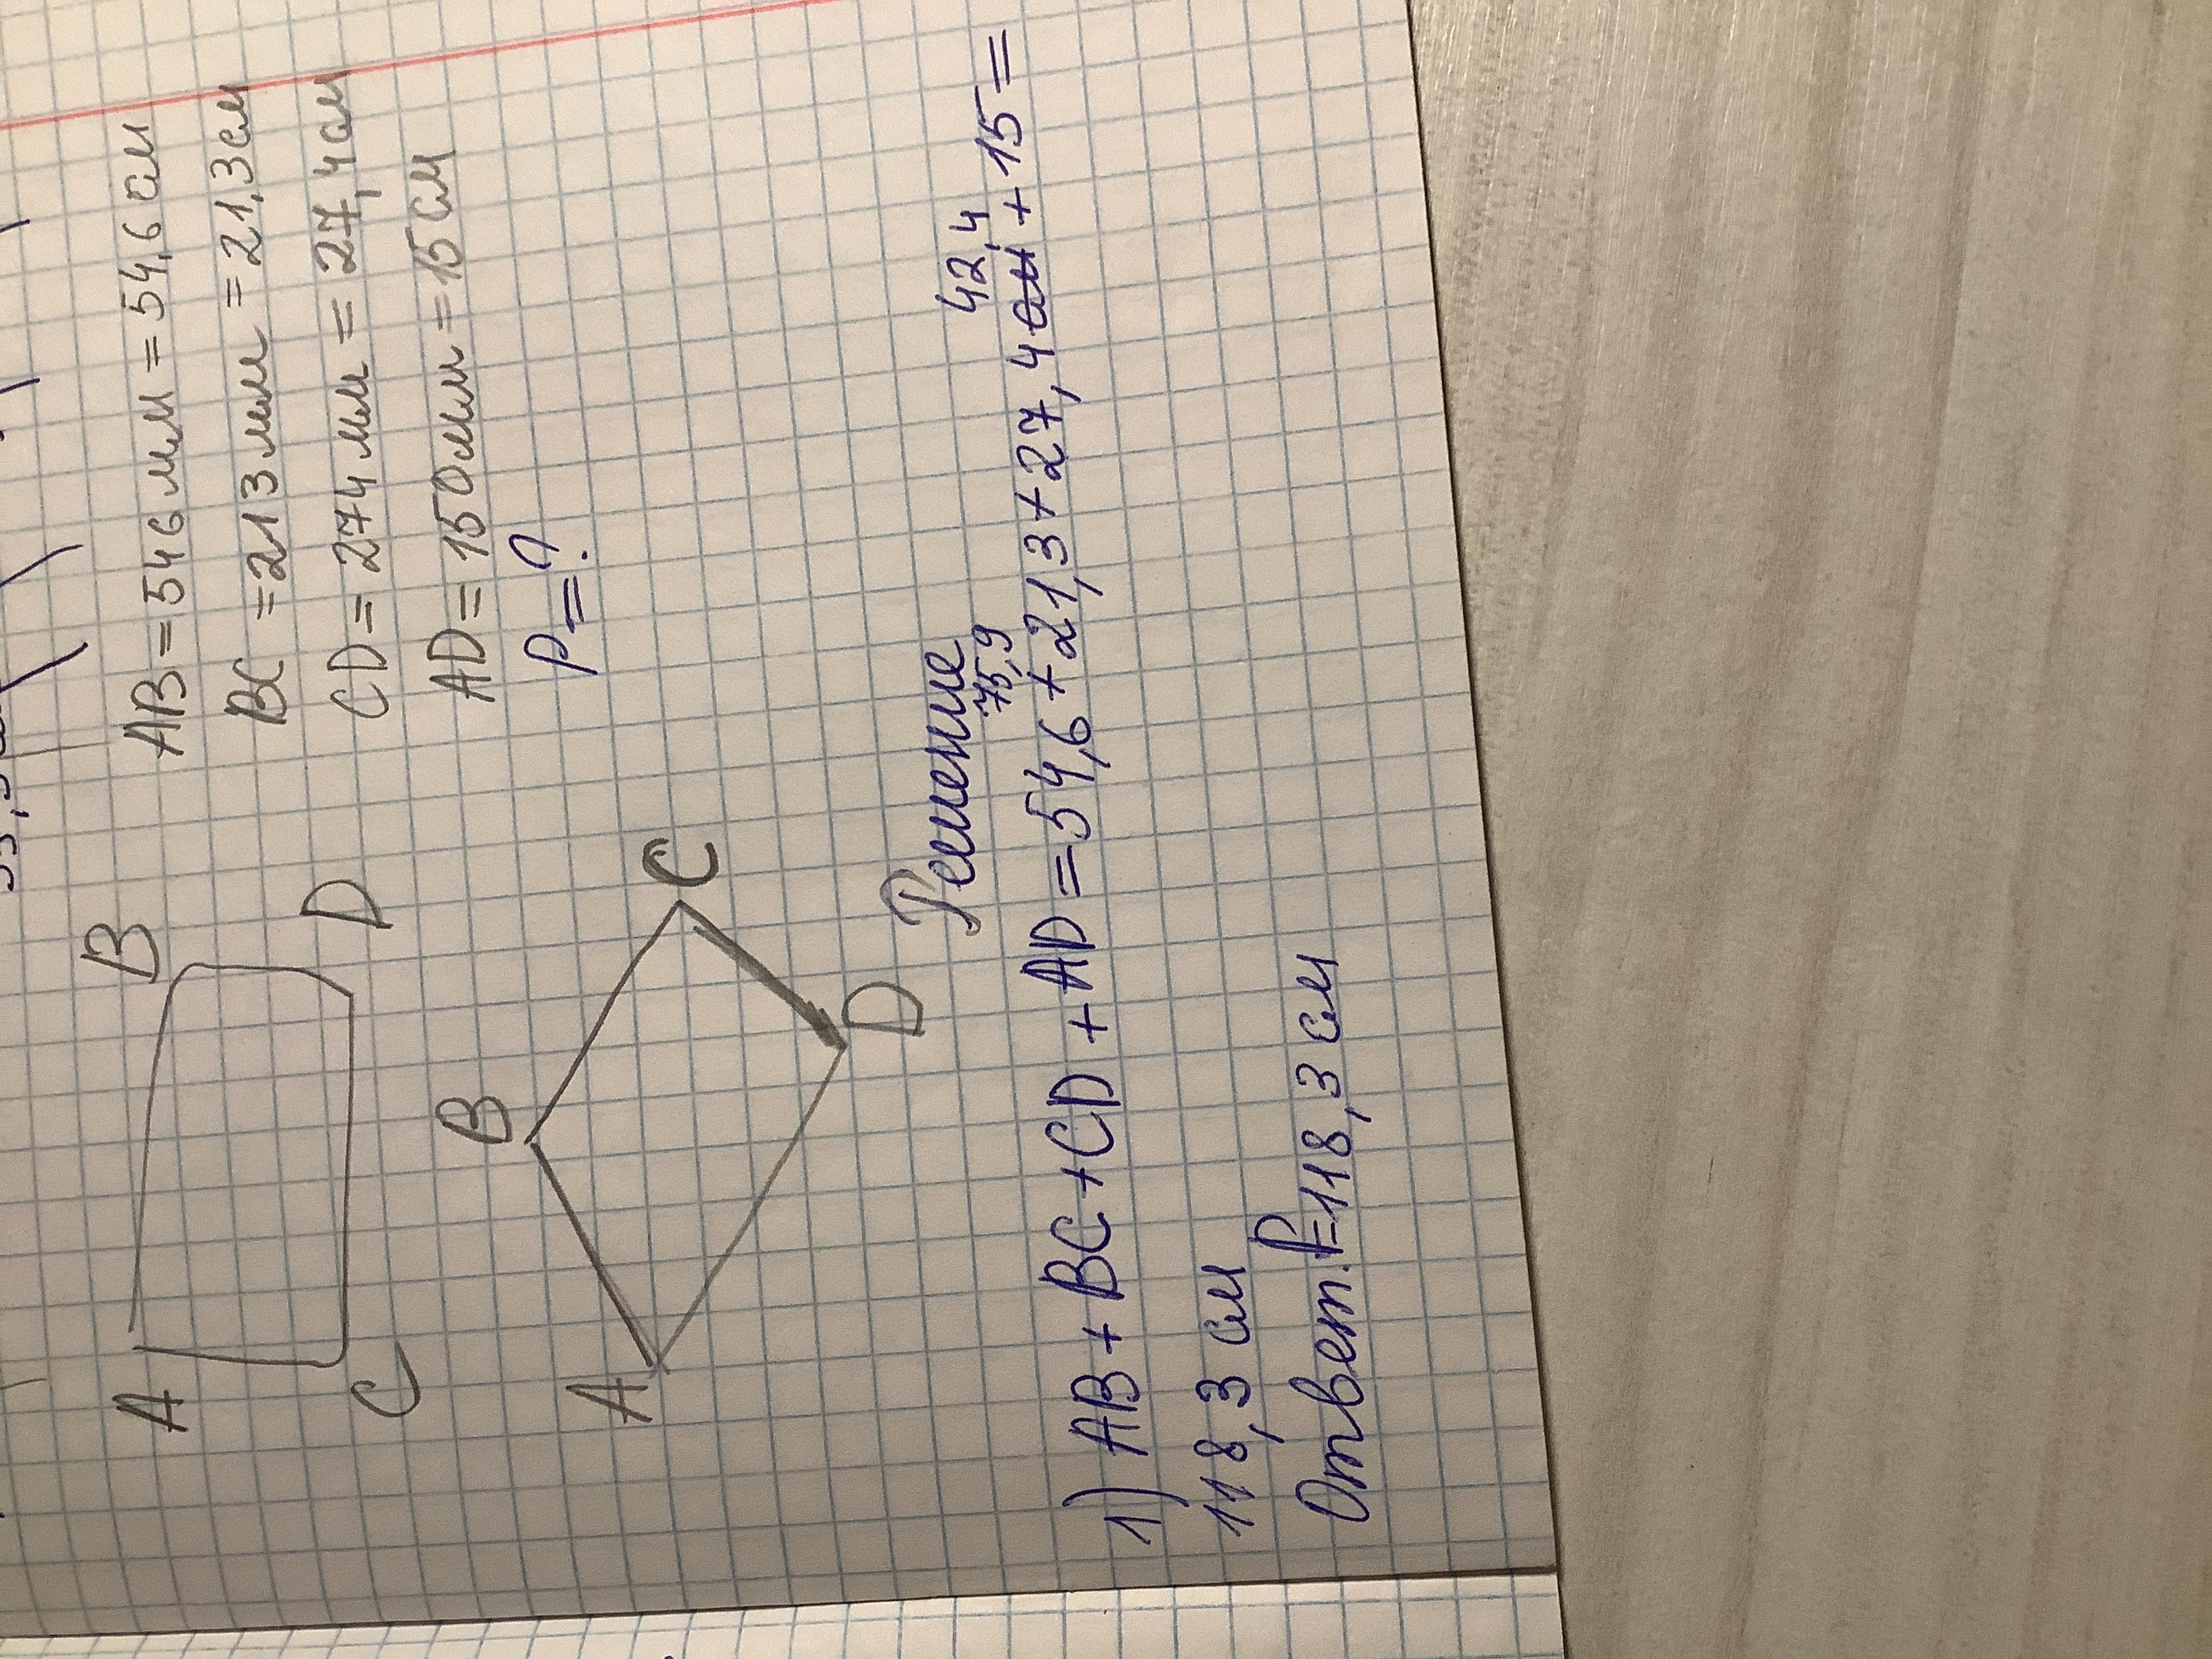 B
A
D
C
AB = 546 мм = 54,6 см
BC = 213 мм = 21,3 см
CD = 274 мм = 27,4 см
AD = 150 мм = 15 см
P = ?
B
A
C
D
Решение
75,9 42,4
1) AB + BC + CD + AD = 54,6 + 21,3 + 27,4 см + 15 =
118,3 см
Ответ. P=118,3 см